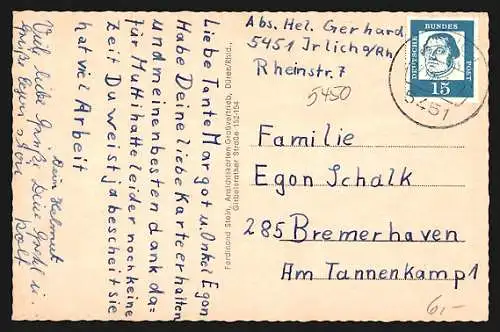 Abs. Hel. Gerhard,
5451 Irlich a/Rh
Rheinstr. 7
5450
DEUTSCHE BUNDESPOST
15
5451
Familie
Egon Schalk
285 Bremerhaven
Am Tannenkamp 1
6,-
Ferdinand Stein, Ansichtskarten Großvertrieb, Düren/Rhld.
Girbelsrather Straße 152-154
Liebe Tante Margot u. Onkel Egon
Habe Deine liebe Karte erhalten
und meinen besten dank da=
für Mutti hatte leider noch keine
Zeit Du weist ja bescheit sie
hat viel Arbeit
Dein Helmut
Viele liebe Grüße Deine